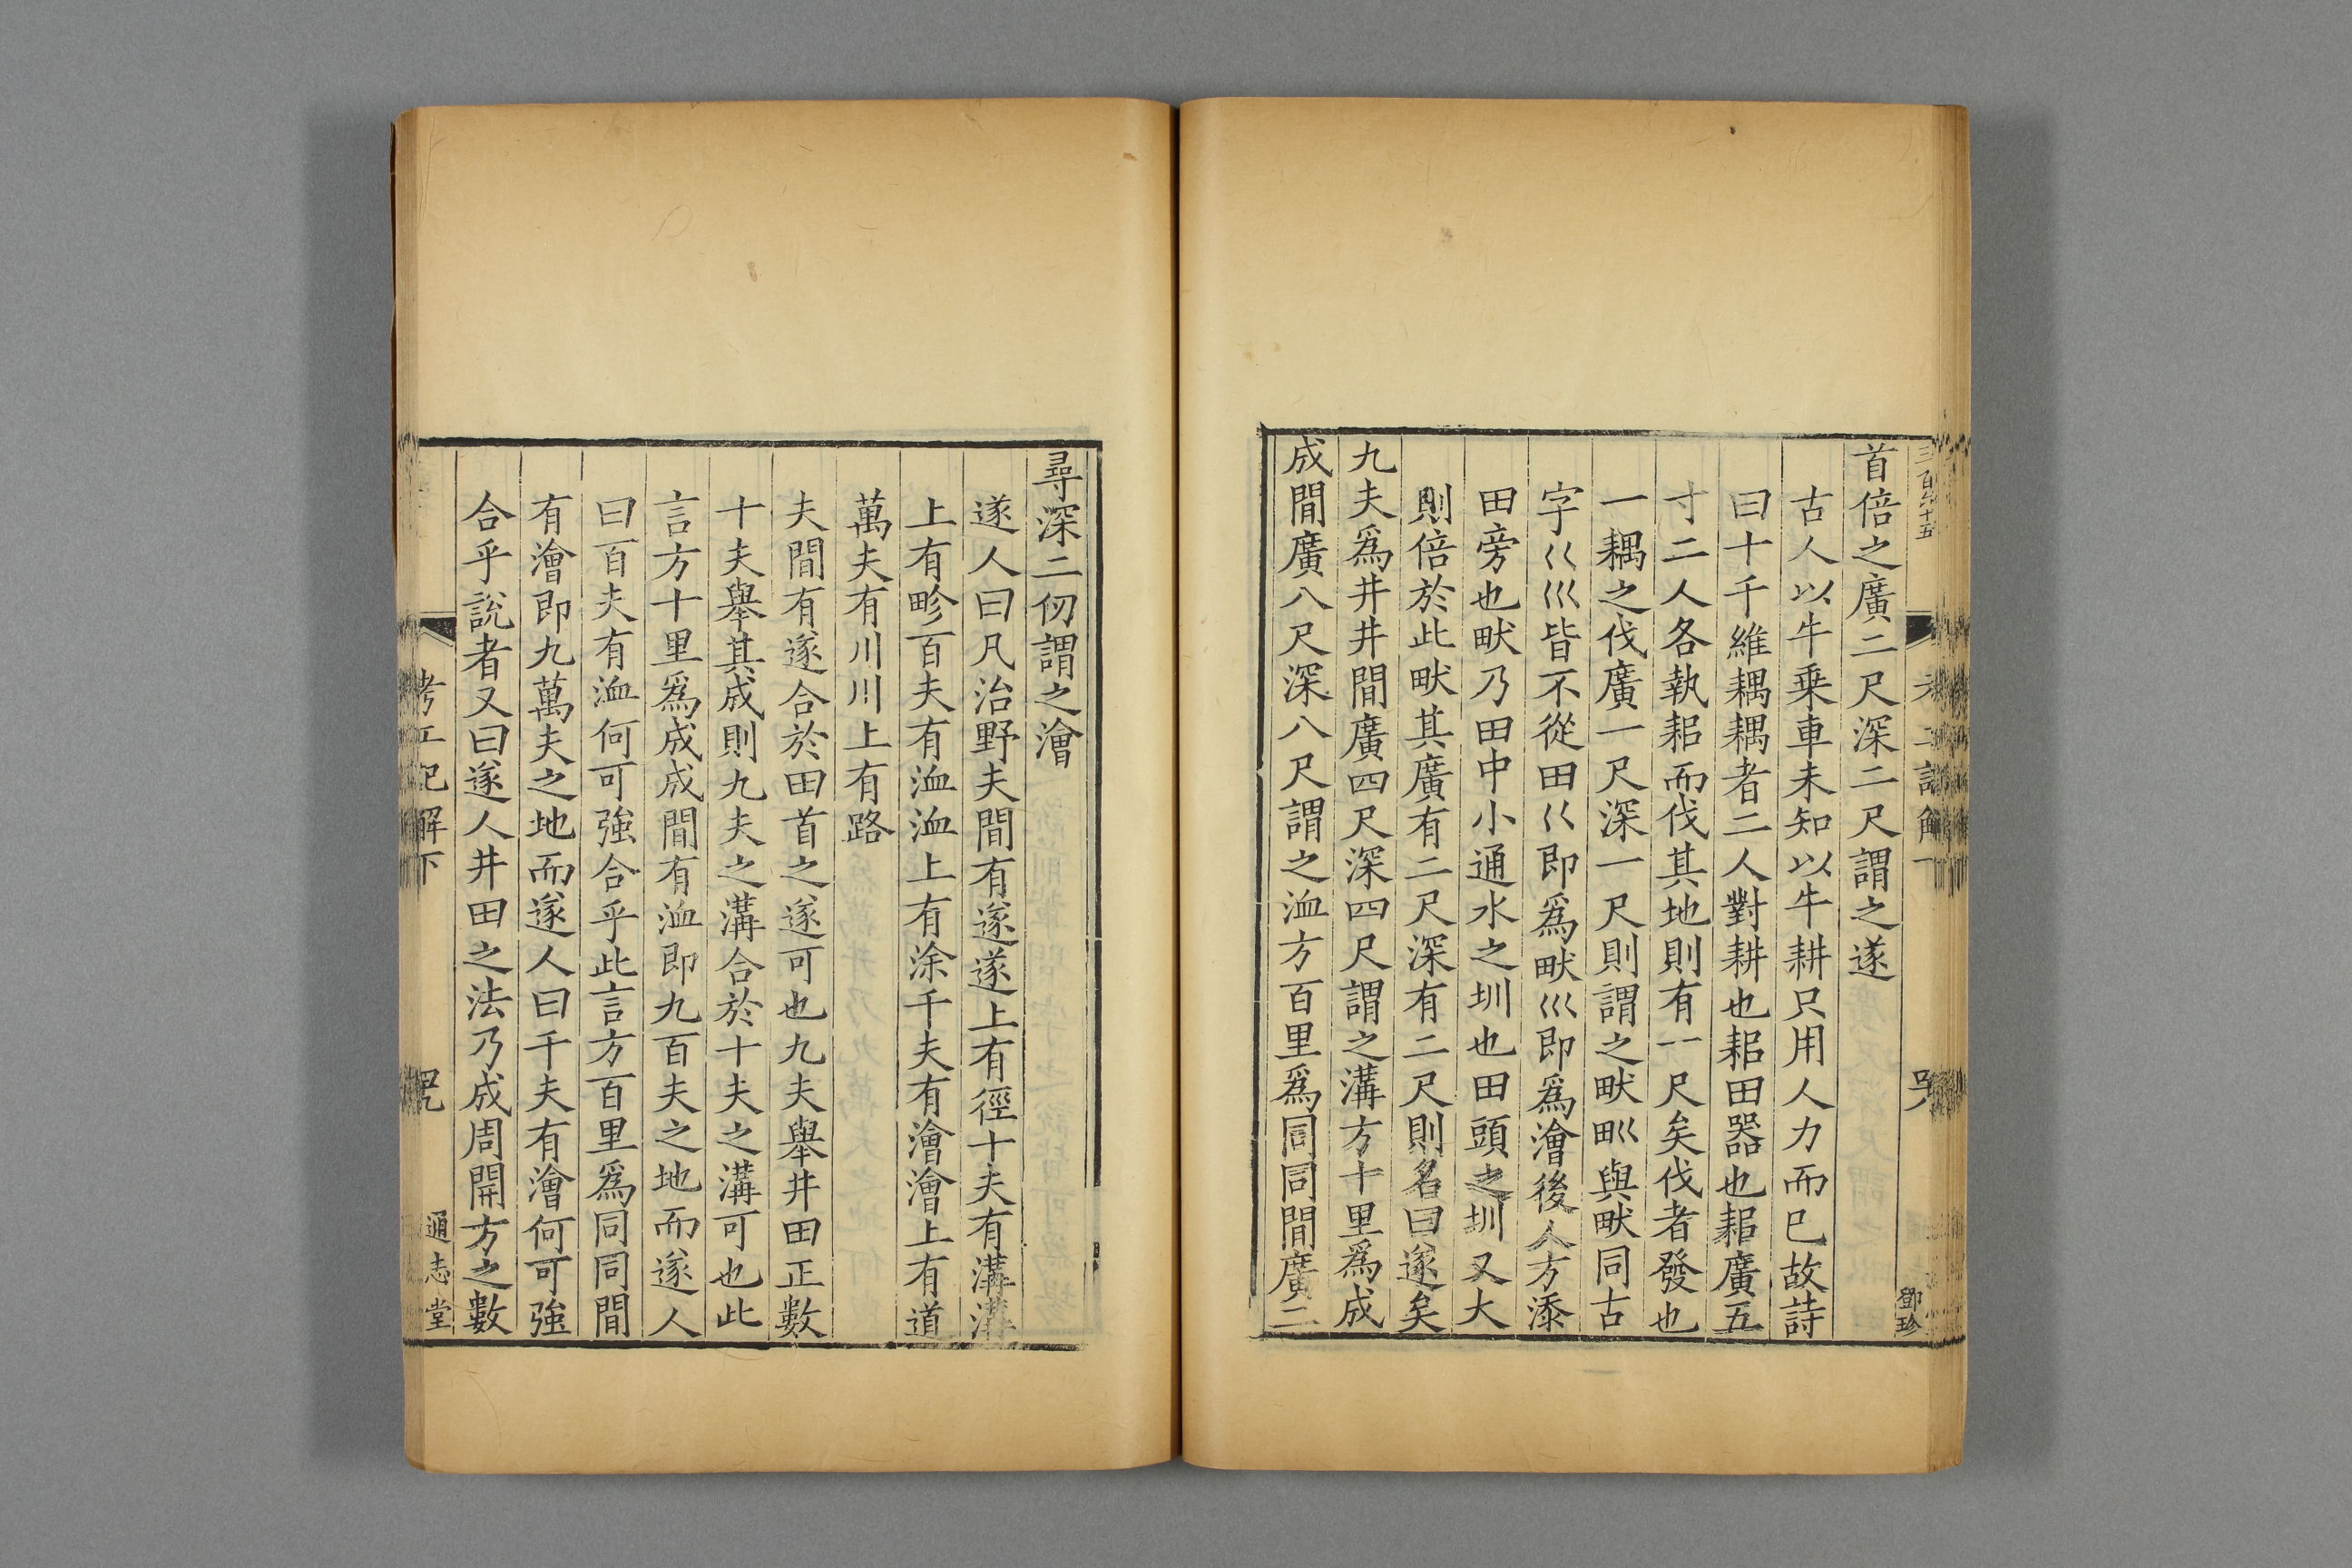 三百六十五
鄧珍
首倍之廣二尺深二尺謂之遂
古人以牛乗車未知以牛耕只用人力而已故詩
曰十千維耦耦者二人對耕也耜田器也耜廣五
寸二人各執耜而伐其地則有一尺矣伐者發也
一耦之伐廣一尺深一尺則謂之畎甽與畎同古
字巜巛皆不從田巜即爲畎巛即爲澮後人方添
田旁也畎乃田中小通水之圳也田頭之圳又大
則倍於此畎其廣有二尺深有二尺則名曰遂矣
九夫爲井井間廣四尺深四尺謂之溝方十里爲成
成間廣八尺深八尺謂之洫方百里爲同同間廣二
尋深二仞謂之澮
遂人曰凡治野夫間有遂遂上有徑十夫有溝溝
上有畛百夫有洫洫上有涂千夫有澮澮上有道
萬夫有川川上有路
夫間有遂合於田首之遂可也九夫舉井田正數
十夫舉其成則九夫之溝合於十夫之溝可也此
言方十里爲成成間有洫即九百夫之地而遂人
曰百夫有洫何可強合乎此言方百里爲同同間
有澮即九萬夫之地而遂人曰千夫有澮何可強
合乎說者又曰遂人井田之法乃成周開方之數
考工記解下
通志堂